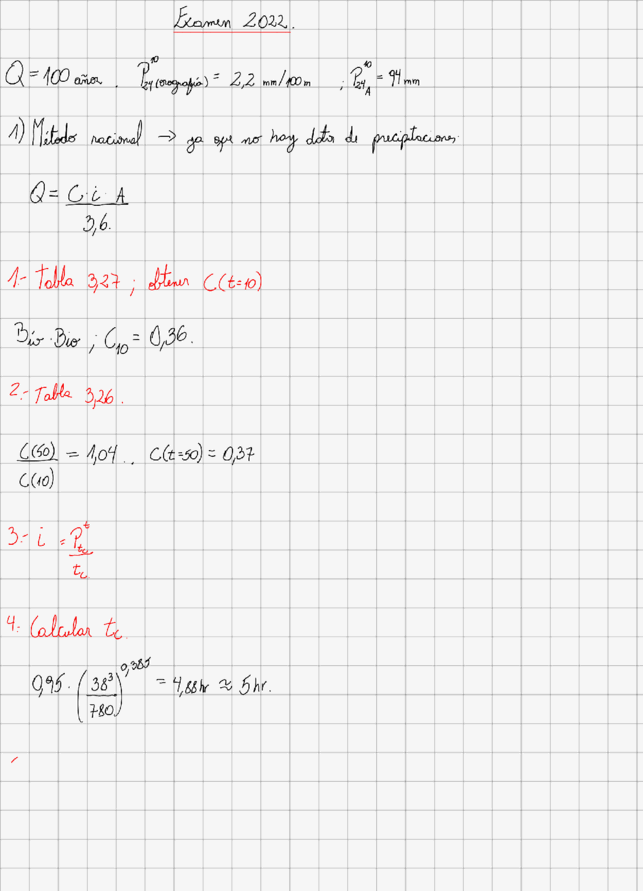 Examen 2022.
Q = 100 años. P₂₄¹⁰(orografía) = 2,2 mm/100m ; P₂₄A¹⁰ = 94 mm
1) Método racional → ya que no hay datos de precipitaciones.
Q = C·i·A
3,6.
1.- Tabla 3,27 ; obtener C(t=10)
Bío-Bío ; C₁₀ = 0,36.
2.- Tabla 3,26.
C(50)/C(10) = 1,04 .. C(t=50) = 0,37
3.- i = P_tc^t / tc
4.- Calcular tc
0,95 · (38³/780)^0,385 = 4,88hr ≈ 5 hr.